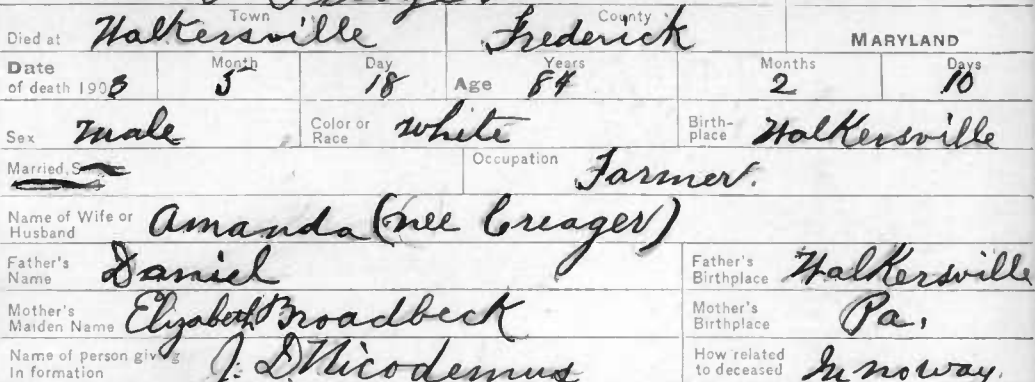 Died at Town Walkersville County Frederick MARYLAND
Date of death 1903 Month 5 Day 18 Age Years 84 Months 2 Days 10
Sex Male Color or Race White Birth-place Walkersville
Married, Occupation Farmer.
Name of Wife or Husband Amanda (nee Creager)
Father's Name Daniel Father's Birthplace Walkersville
Mother's Maiden Name Elizabeth Broadbeck Mother's Birthplace Pa.
Name of person giving In formation J. D. Nicodemus How related to deceased In no way.